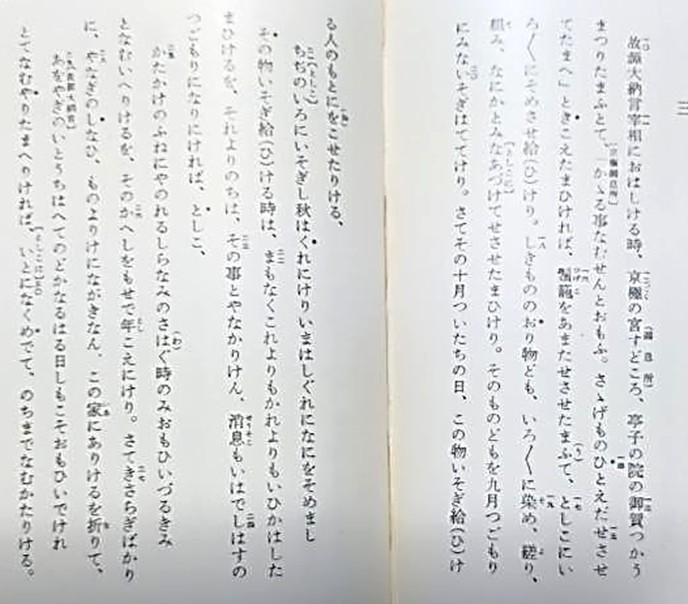 三
故源大納言宰相におはしける時、京極の宮すどころ、亭子の院の御賀つかう
まつりたまふとて、「かゝる事なむせんとおもふ。さゝげものひとえだせさせ
てたまへ」ときこえたまひければ、鬚籠をあまたせさせたまふて、としこにい
ろ〳〵にそめさせ給(ひ)けり。しきもののおり物ども、いろ〳〵に染め、縒り、
組み、なにかとみなあづけてせさせたまひけり。そのものどもを九月つごもり
にみないそぎはててけり。さてその十月ついたちの日、この物いそぎ給(ひ)け
る人のもとにをこせたりける、
ちぢのいろにいそぎし秋はくれにけりいまはしぐれになにをそめまし
その物いそぎ給(ひ)ける時は、まもなくこれよりもかれよりもいひかはした
まひけるを、それよりのちは、その事とやなかりけん、消息もいはでしはすの
つごもりになりにければ、としこ、
かたかけのふねにやのれるしらなみのさはぐ時のみおもひいづるきみ
となむいへりけるを、そのかへしをもせで年こえにけり。さてきさらぎばかり
に、やなぎのしなひ、ものよりけにながきなん、この家にありけるを折りて、
あをやぎのいとうちはへてのどかなるはる日しもこそおもひいでけれ
とてなむやりたまへりければ、いとになくめでて、のちまでなむかたりける。